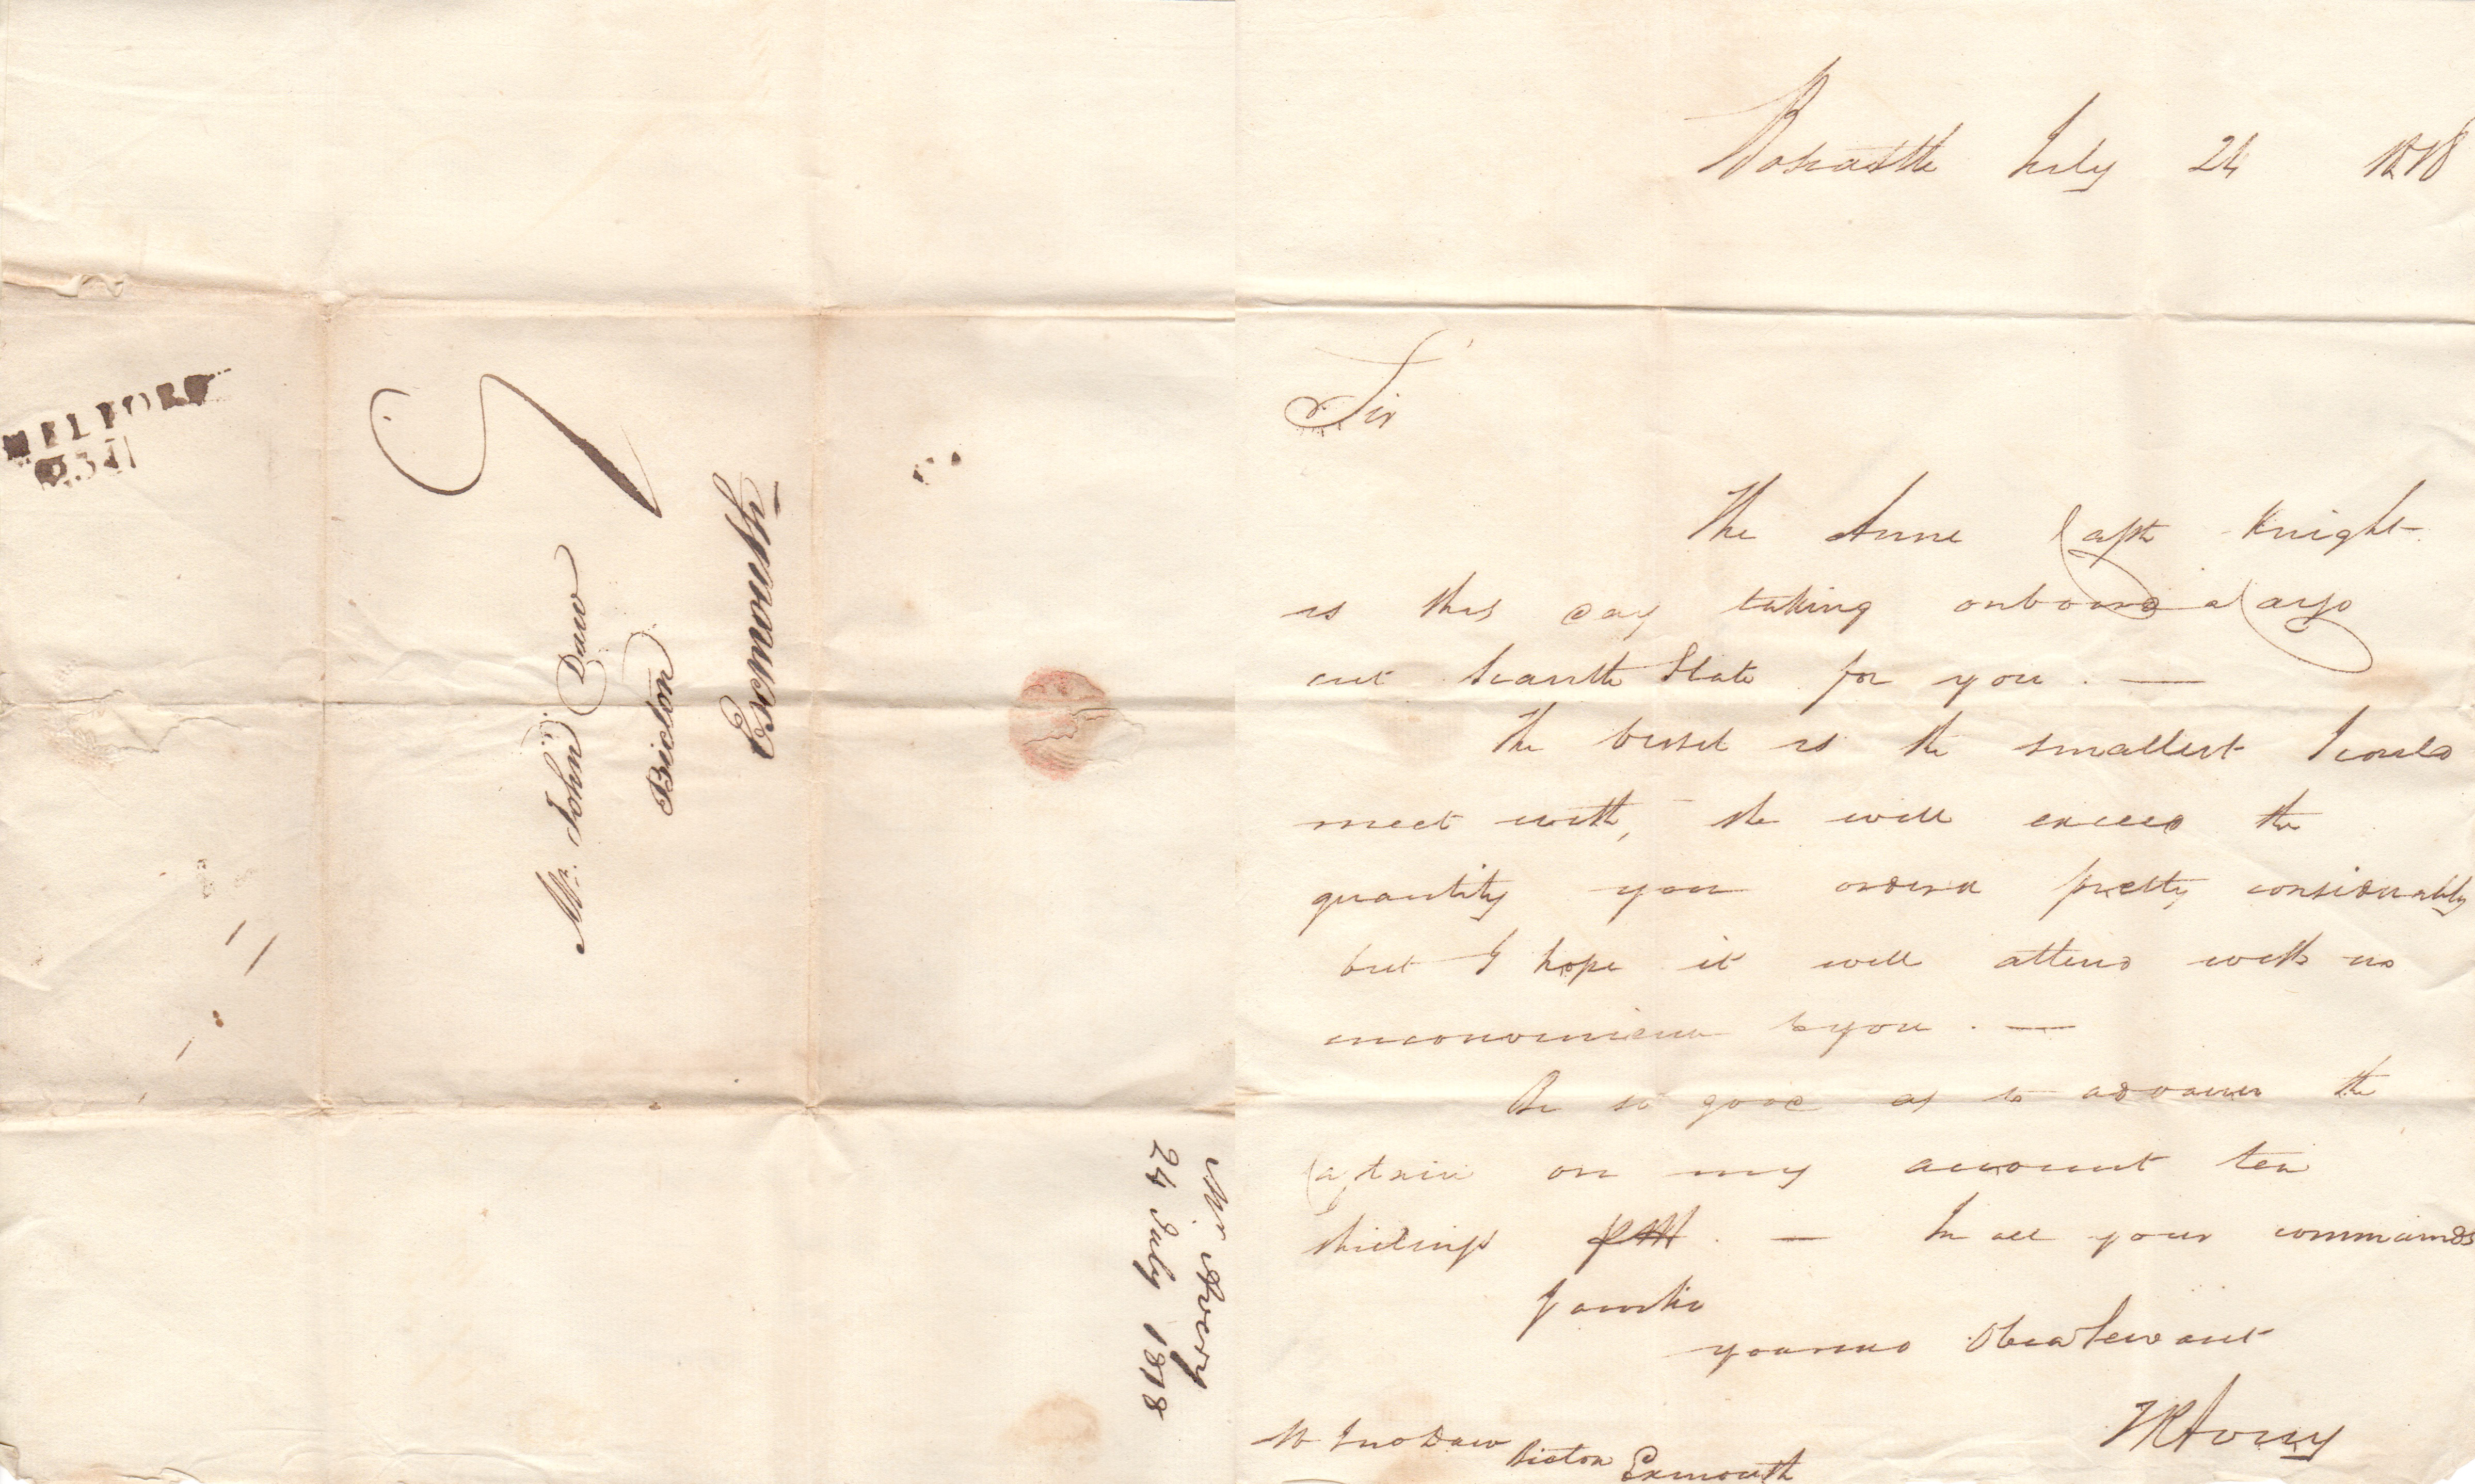 MELFORD
Mr. John Daw
Bicton
Exmouth
Mr Avery
24 July 1818
Boscastle July 24 1818
Sir
The Anne Capt Knight
is this day taking onboard a Cargo
cut Scantle Slate for you . —
The vessel is the smallest I could
meet with, she will exceed the
quantity you order'd pretty considerably
but I hope it will attend with no
inconvenience to you . —
Be so good as to advance the
Captain on my account ten
shillings . — In all your commands
I am Sir
your mo Obed Servant
T R Avery
Mr Jno Daw Bicton Exmouth